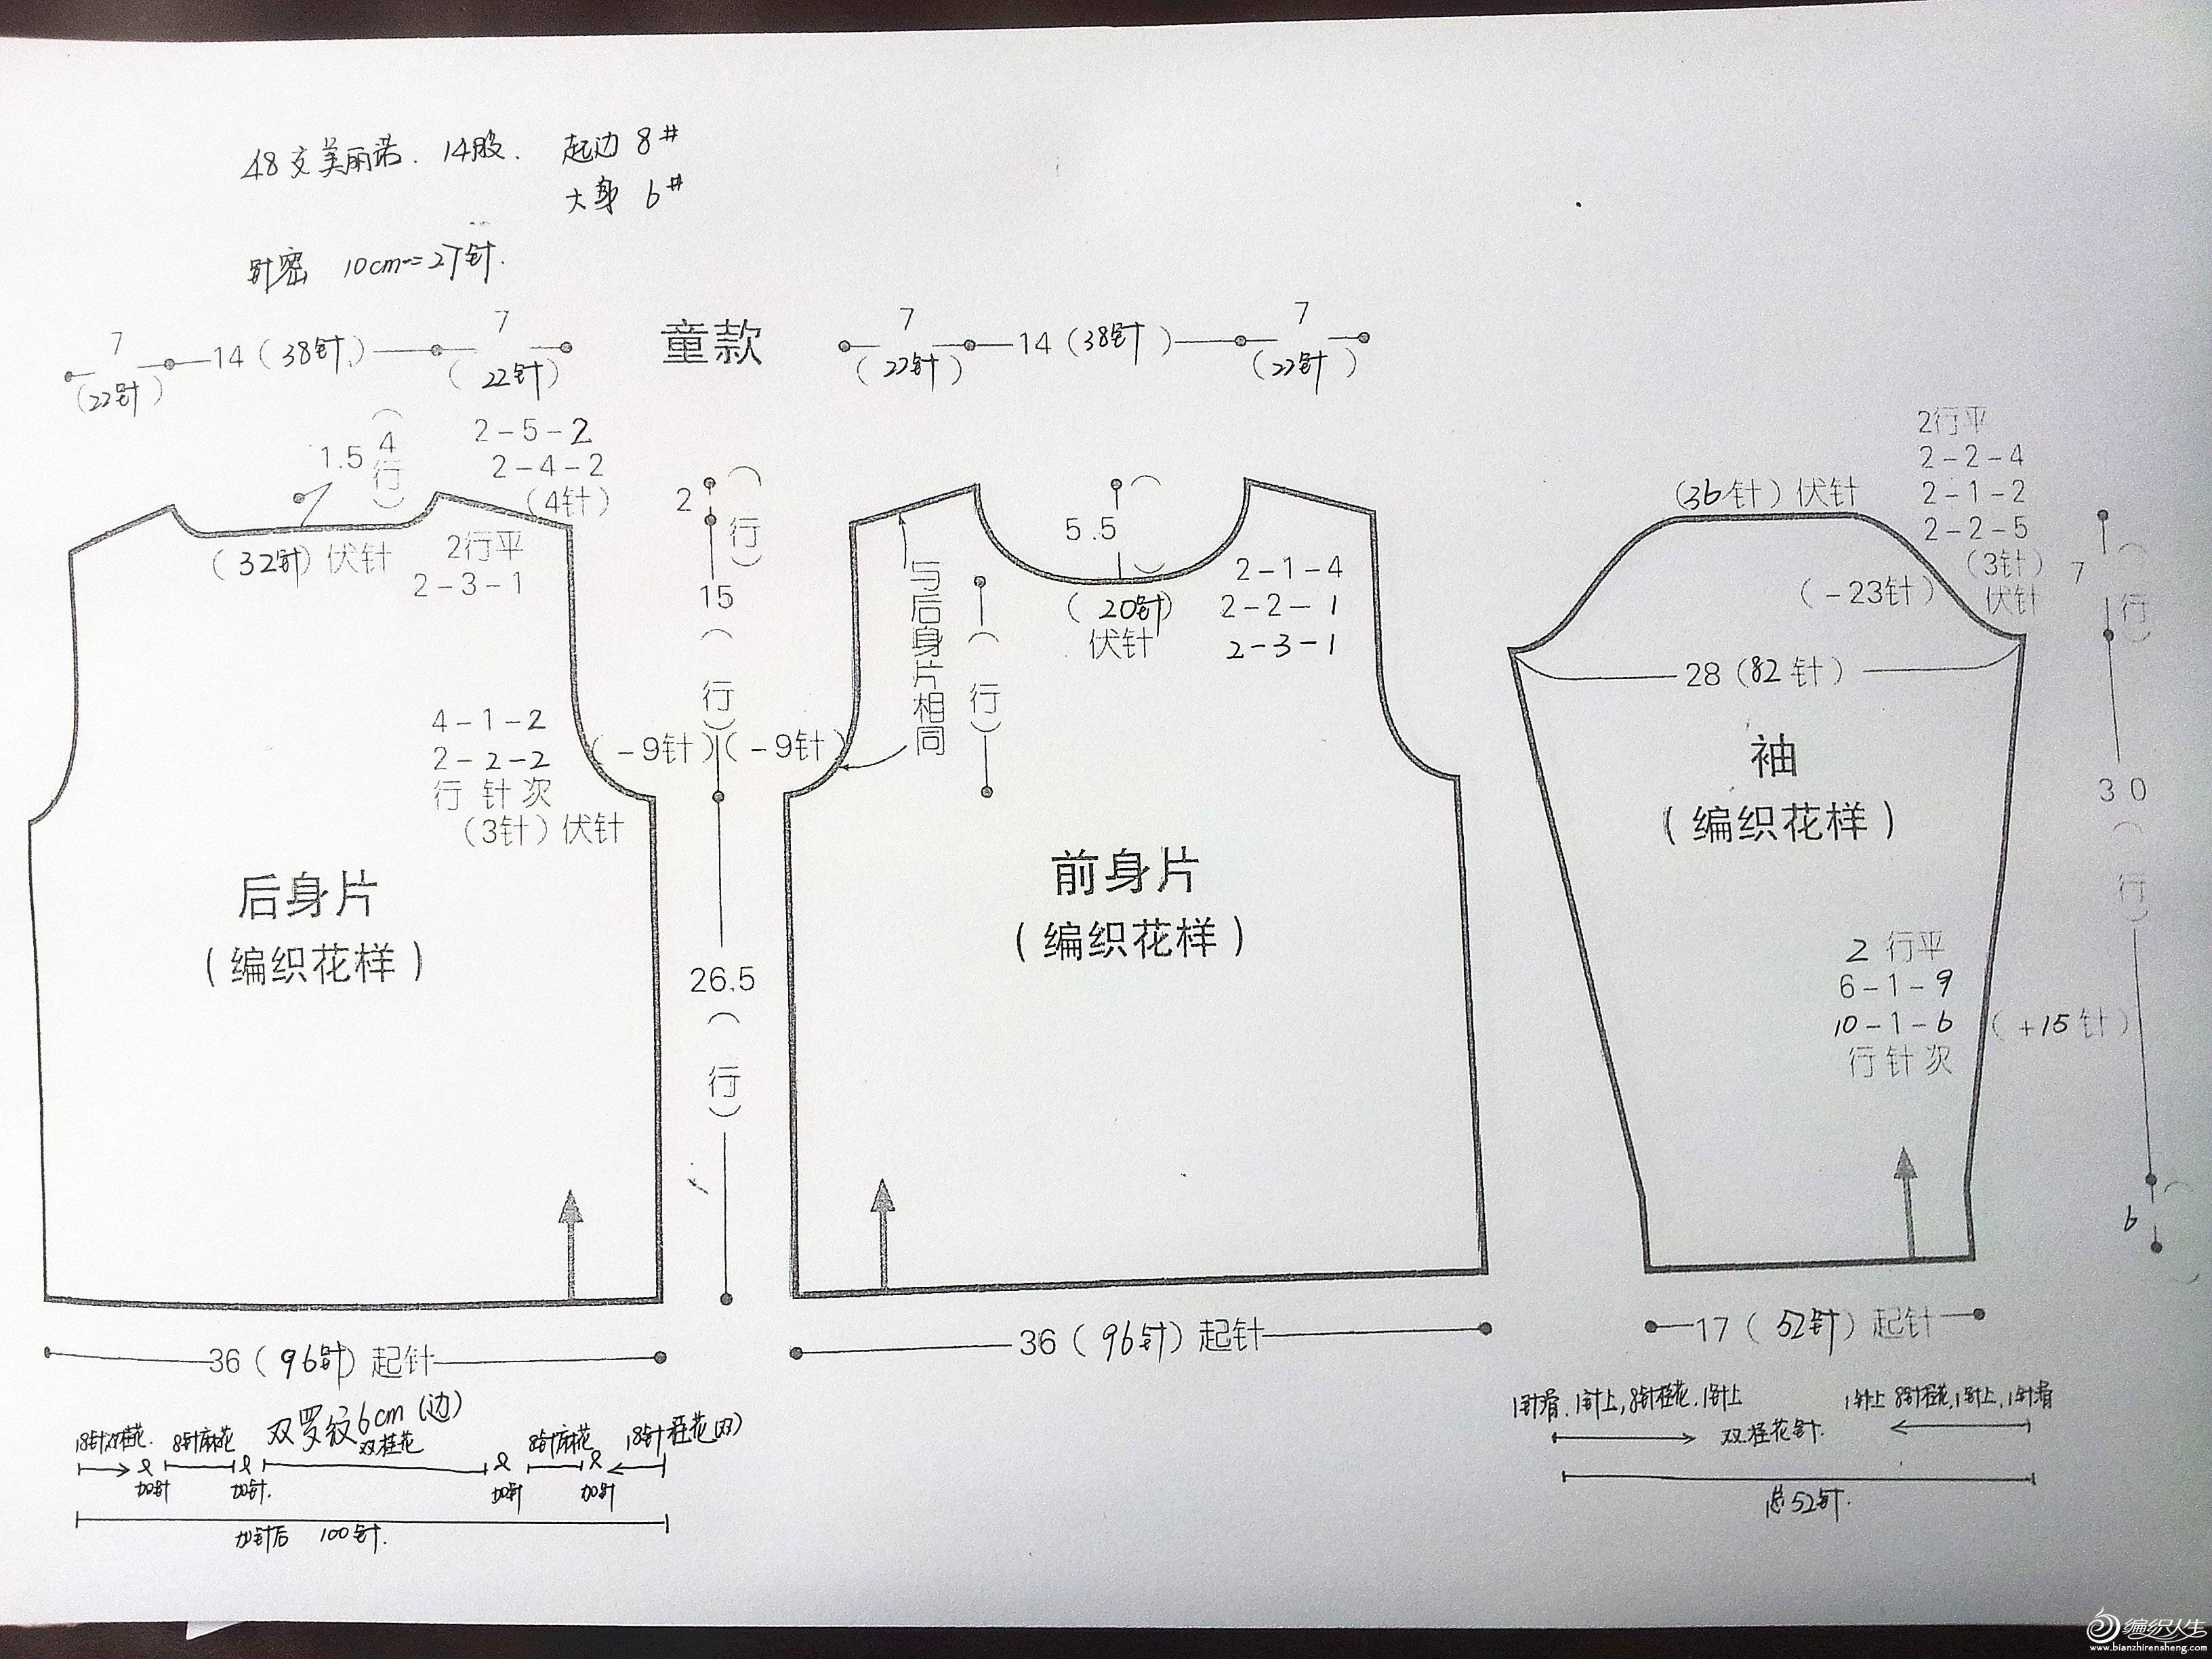 48支美丽诺. 14股. 起边 8#
大身 6#
针密 10cm=27针.
童款
7
14(38针)
7
(22针)
(22针)
1.5
4
(行)
2-5-2
2-4-2
(4针)
(32针)伏针
2行平
2-3-1
4-1-2
2-2-2
行 针 次
(3针)伏针
(-9针)
后身片
(编织花样)
36(96针)起针
2
(行)
15
(行)
26.5
(行)
7
14(38针)
7
(22针)
(22针)
5.5
(行)
(20针)
伏针
2-1-4
2-2-1
2-3-1
与后身片相同
(-9针)
前身片
(编织花样)
36(96针)起针
(36针)伏针
2行平
2-2-4
2-1-2
2-2-5
(3针)
伏针
(-23针)
28(82针)
袖
(编织花样)
2 行平
6-1-9
10-1-6
行 针 次
(+15针)
7
(行)
30
(行)
6
17(52针)起针
双罗纹6cm(边)
18针双桂花.
8针麻花
双桂花
8针麻花
18针桂花(双)
加针
加针.
加针
加针
加针后 100针.
1针肩.1针上,8针桂花.1针上
1针上 8针桂花,1针上,1针肩
双桂花针.
总52针.
编织人生
www.bianzhirensheng.com